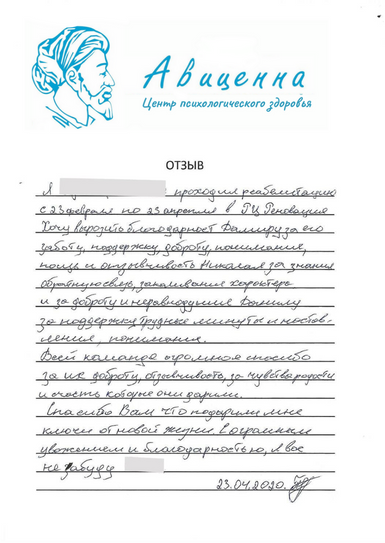 Авиценна
Центр психологического здоровья
ОТЗЫВ
Я проходил реабилитацию
с 23 февраля по 23 апреля в РЦ Реновация
Хочу выразить благодарност Дамиру за его
заботу, поддержку, доброту, понимание,
помощь и отзывчивость Николая за знания
обратную связь, закаливание характера
и за доброту и неравнодушие Данилу
за поддержка трудные минуты и настав-
ления, понимания.
Всей команде огромное спасибо
за их доброту, отзывчивость, за чувства радости
и счасть которые они дарили.
Спасибо Вам что подарили мне
ключи от новой жизни. С огромным
уважением и благодарностью, я вас
не забуду
23.04.2020.